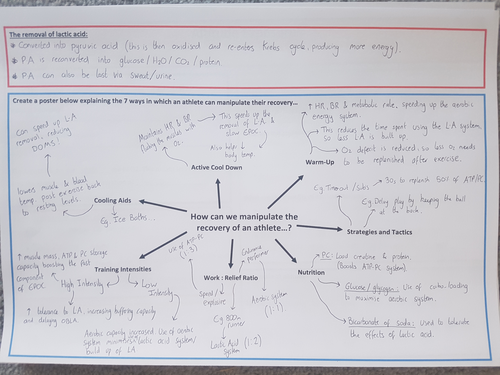 The removal of lactic acid:
* Converted into pyruvic acid (this is then oxidised and re-enters Krebs cycle, producing more energy).
* PA is reconverted into glucose / H2O / CO2 / protein.
* PA can also be lost via sweat/urine.
Create a poster below explaining the 7 ways in which an athlete can manipulate their recovery…
Can speed up LA
removal, reducing
DOMS!
Maintains HR & BR
This speeds up the
removal of LA &
slow EPOC.
Also helps ↓
body temp.
Active Cool Down
↑ HR, BR & metabolic rate, speeding up the aerobic
energy system.
This reduces the time spent using the LA system,
so less LA is built up.
O2 deficit is reduced, so less O2 needs
to be replenished after exercise.
Warm-Up
lowers muscle & blood
temp. post exercise back
to resting levels.
Cooling Aids
Eg. Ice Baths...
How can we manipulate the
recovery of an athlete…?
Eg Timeout / subs
30s to replenish 50% of ATP/PC.
Eg Delay play by keeping the ball
at the back.
Strategies and Tactics
↑ muscle mass, ATP & PC storage
capacity boosting the fast
component
of EPOC.
Training Intensities
High Intensity
Low
Intensity
↑ tolerance to LA, increasing buffering capacity
and delaying OBLA.
Aerobic capacity increased. Use of aerobic
system minimises lactic acid system/
build up of LA
Work : Relief Ratio
Use of ATP-PC
(1:3)
Speed/
explosive
Eg 800m
runner
Lactic Acid
System (1:2)
Endurance
Performer
Aerobic system
(1:1)
Nutrition
PC: Load creatine & protein.
(Boosts ATP-PC system)
Glucose/glycogen: Use of carbo-loading
to maximise aerobic system.
Bicarbonate of soda: Used to tolerate
the effects of lactic acid.